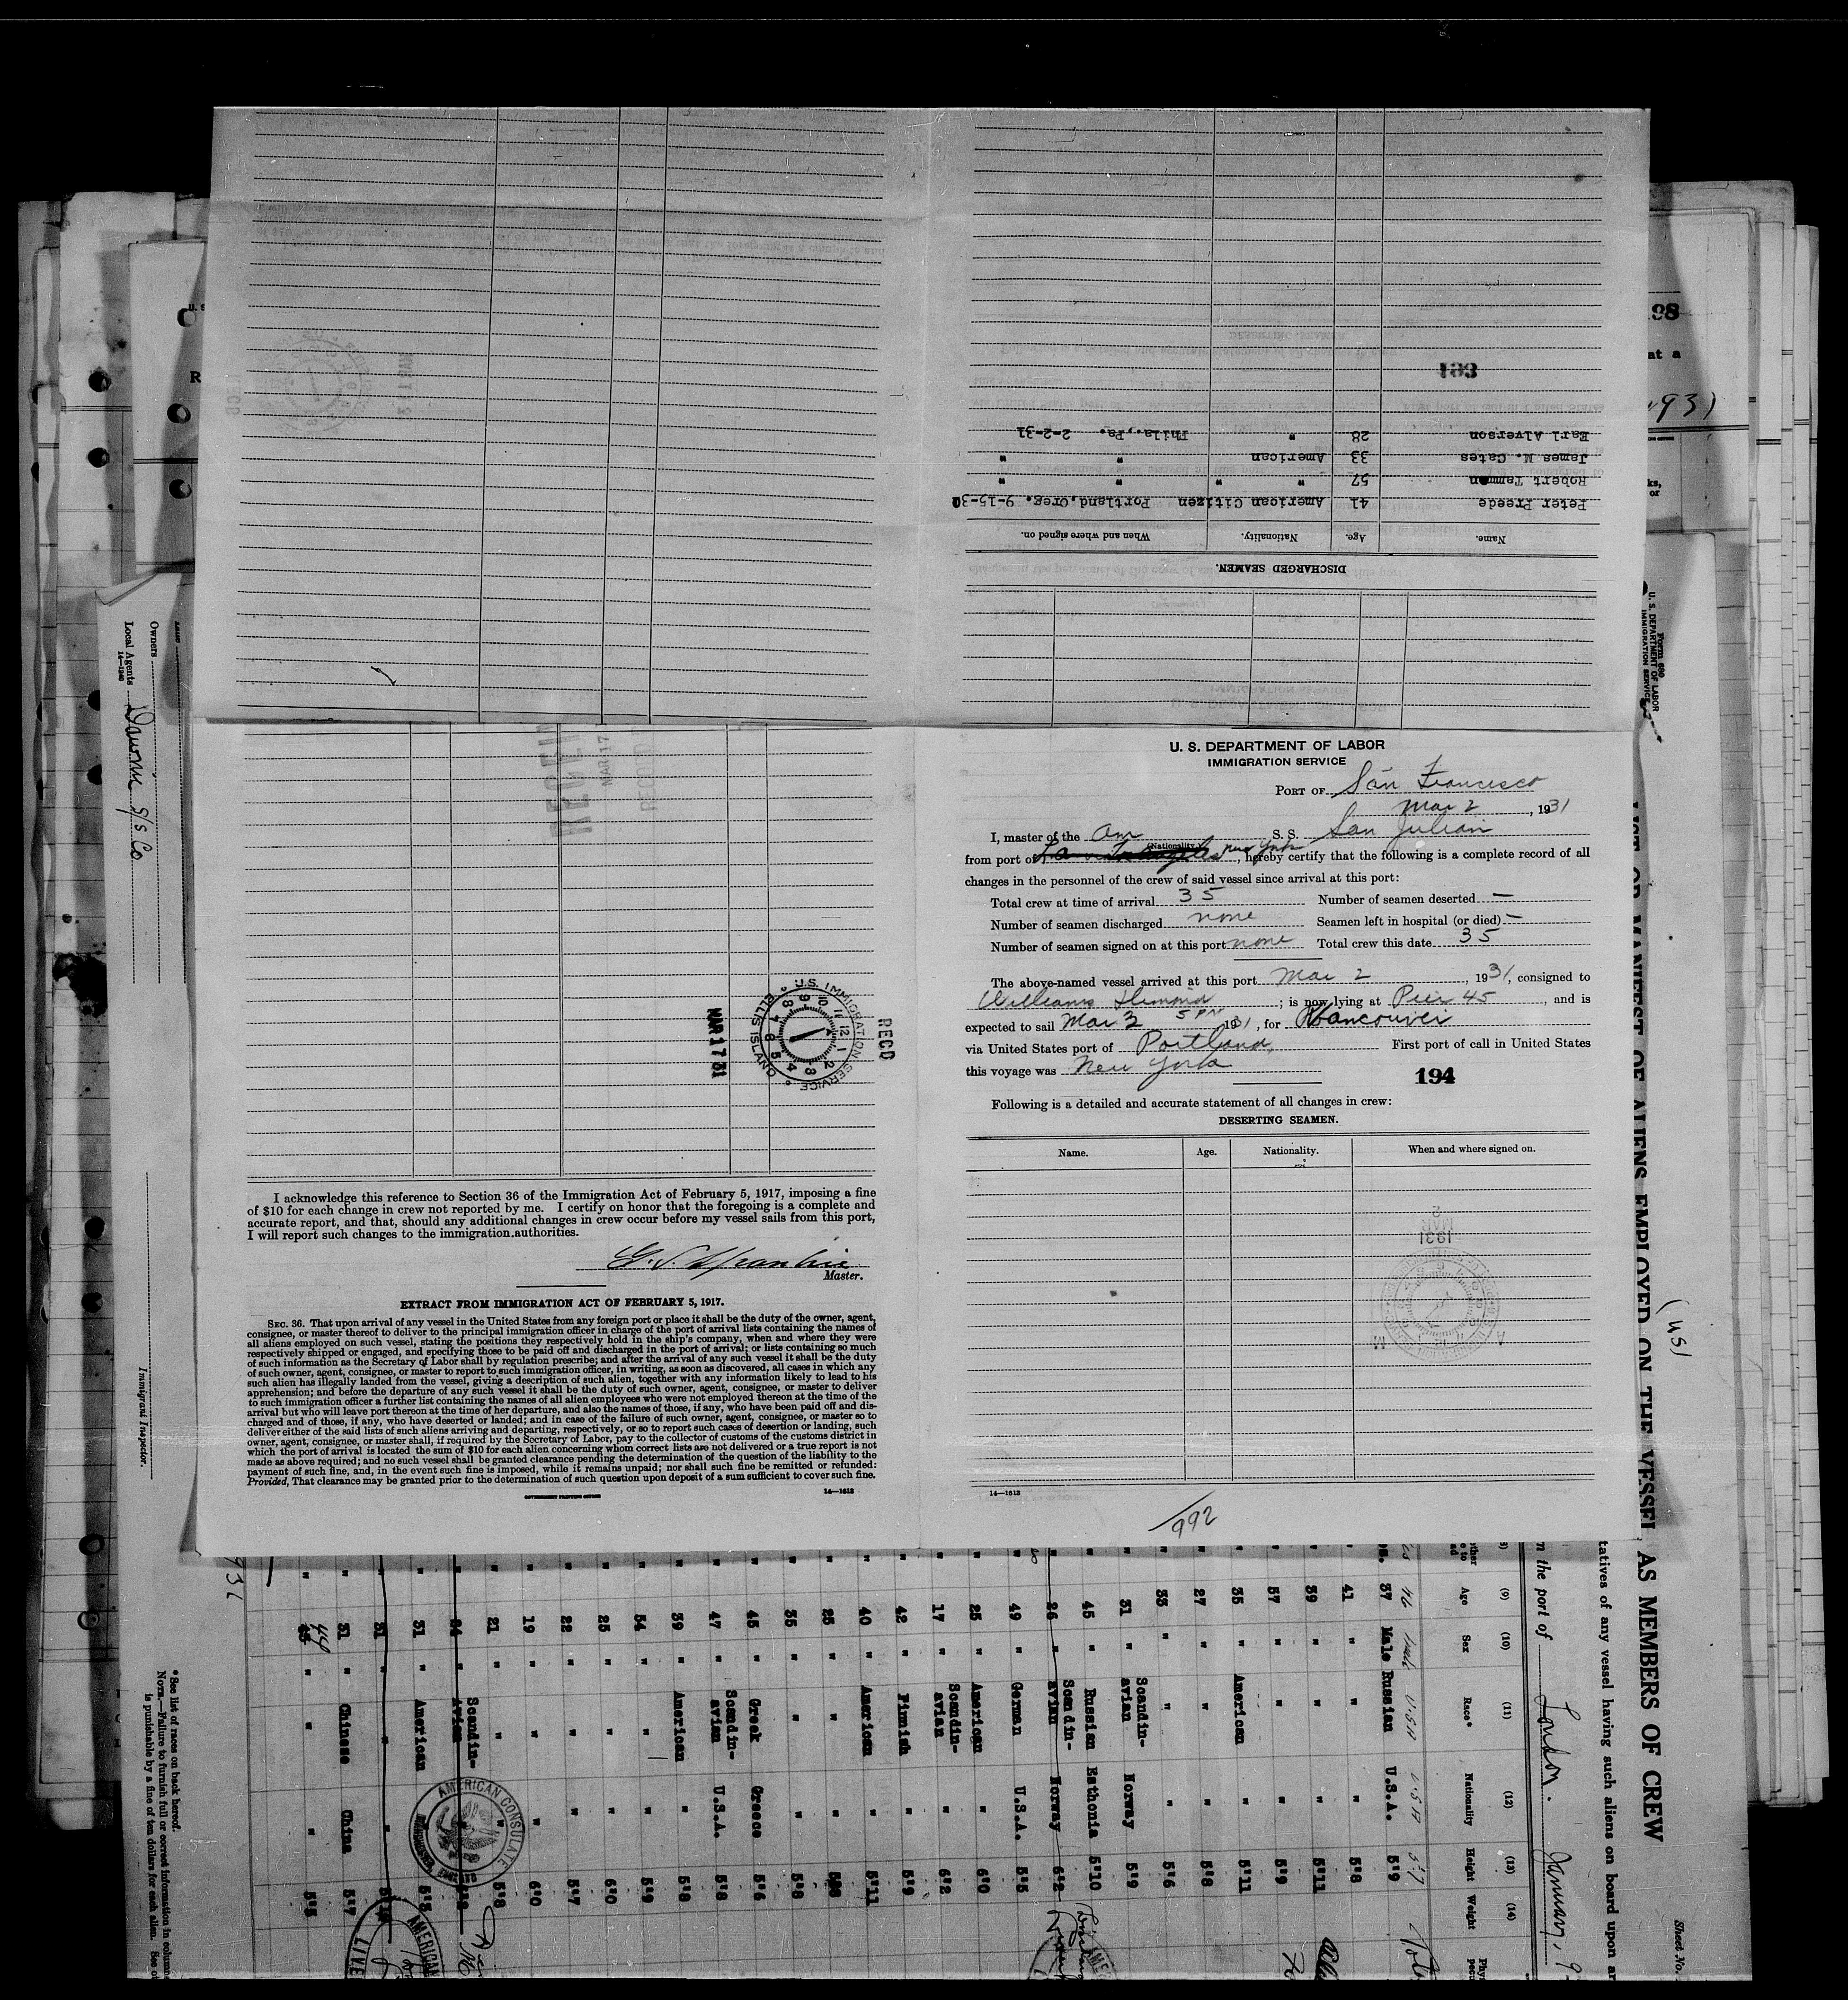 193
Earl Alverson 28 " Phila.,Pa. 2-2-31
James M. Cates 33 American " "
Robert Tamman 57 " " " "
Peter Preede 41 American Citizen Portland,Oreg. 9-15-30
Name. Age. Nationality. When and where signed on.
DISCHARGED SEAMEN.
U. S. DEPARTMENT OF LABOR
IMMIGRATION SERVICE
PORT OF San Francisco
Mar 2, 1931
I, master of the Am S. S. San Julian
(Nationality)
from port of New York, hereby certify that the following is a complete record of all
changes in the personnel of the crew of said vessel since arrival at this port:
Total crew at time of arrival 35 Number of seamen deserted —
Number of seamen discharged none Seamen left in hospital (or died) —
Number of seamen signed on at this port none Total crew this date 35
The above-named vessel arrived at this port Mar 2, 1931, consigned to
Williams Dimond; is now lying at Pier 45, and is
expected to sail Mar 3 5 PM 1931, for Vancouver
via United States port of Portland, First port of call in United States
this voyage was New York
194
Following is a detailed and accurate statement of all changes in crew:
DESERTING SEAMEN.
Name. Age. Nationality. When and where signed on.
MAR 2
1931
14—1613
992
MAR 17 31
U.S. IMMIGRATION SERVICE
ELLIS ISLAND
RECD
I acknowledge this reference to Section 36 of the Immigration Act of February 5, 1917, imposing a fine
of $10 for each change in crew not reported by me. I certify on honor that the foregoing is a complete and
accurate report, and that, should any additional changes in crew occur before my vessel sails from this port,
I will report such changes to the immigration authorities.
Master.
EXTRACT FROM IMMIGRATION ACT OF FEBRUARY 5, 1917.
SEC. 36. That upon arrival of any vessel in the United States from any foreign port or place it shall be the duty of the owner, agent,
consignee, or master thereof to deliver to the principal immigration officer in charge of the port of arrival lists containing the names of
all aliens employed on such vessel, stating the positions they respectively hold in the ship's company, when and where they were
respectively shipped or engaged, and specifying those to be paid off and discharged in the port of arrival; or lists containing so much
of such information as the Secretary of Labor shall by regulation prescribe; and after the arrival of any such vessel it shall be the duty
of such owner, agent, consignee, or master to report to such immigration officer, in writing, as soon as discovered, all cases in which any
such alien has illegally landed from the vessel, giving a description of such alien, together with any information likely to lead to his
apprehension; and before the departure of any such vessel it shall be the duty of such owner, agent, consignee, or master to deliver
to such immigration officer a further list containing the names of all alien employees who were not employed thereon at the time of the
arrival but who will leave port thereon at the time of her departure, and also the names of those, if any, who have been paid off and dis-
charged and of those, if any, who have deserted or landed; and in case of the failure of such owner, agent, consignee, or master so to
deliver either of the said lists of such aliens arriving and departing, respectively, or so to report such cases of desertion or landing, such
owner, agent, consignee, or master shall, if required by the Secretary of Labor, pay to the collector of customs of the customs district in
which the port of arrival is located the sum of $10 for each alien concerning whom correct lists are not delivered or a true report is not
made as above required; and no such vessel shall be granted clearance pending the determination of the question of the liability to the
payment of such fine, and, in the event such fine is imposed, while it remains unpaid; nor shall such fine be remitted or refunded:
Provided, That clearance may be granted prior to the determination of such question upon deposit of a sum sufficient to cover such fine.
GOVERNMENT PRINTING OFFICE 14—1613
Owners
Local Agents
14—1240
Immigrant Inspector.
Form 680
U. S. DEPARTMENT OF LABOR
IMMIGRATION SERVICE
LIST OR MANIFEST OF ALIENS EMPLOYED ON THE VESSEL AS MEMBERS OF CREW
Sheet No.
tatives of any vessel having such aliens on board upon ar
m the port of London. January, 9-
(9) (10) (11) (12) (13) (14)
Age Sex Race* Nationality Height Weight
46 male U.S.A U.S.A 5'7
37 Male Russian U.S.A. 5'9
41 " " " 5'8
39 " " " 5'11
57 " " " 5'9
35 " American " 5'11
27 " " " 5'8
33 " " " 5'6
31 " Scandin-avian Norway 5'9
45 " Russian Esthonia 5'10
26 " Scandin-avian Norway 6'2
49 " German U.S.A. 5'5
25 " American " 6'0
17 " Scandin-avian " 6'2
42 " Finnish " 5'9
40 " American " 5'11
25 " " " 5'8
35 " " " 5'8
45 " Greek Greece 5'6
47 " Scandin-avian U.S.A. 5'8
39 " American " 5'8
54 " " " 5'9
25 " " " 6'0
22 " " " 5'7
19 " " " 6'0
21 " " " 5'8
24 " Scandin-avian
31 " American 5'5
31 " " "
31 " Chinese China 5'7
44 " " " 5'5
AMERICAN CONSULATE
* See list of races on back hereof.
NOTE.—Failure to furnish full or correct information in column
is punishable by a fine of ten dollars for each alien. See